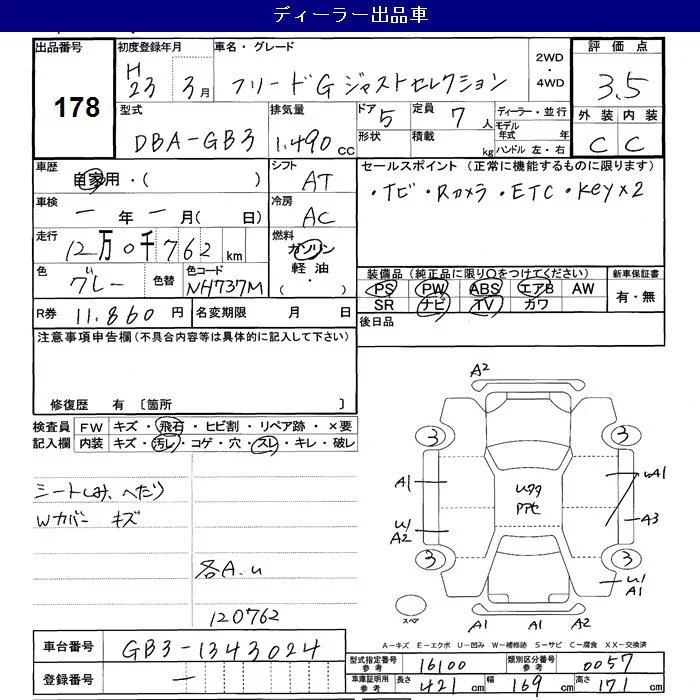 ディーラー出品車
出品番号 178
初度登録年月 H23年 3月
車名・グレード フリードG ジャストセレクション
2WD・4WD
評価点 3.5
型式 DBA-GB3
排気量 1.490cc
ドア 5
定員 7人
形状
積載 kg
ディーラー・並行
モデル年式 年
ハンドル 左・右
外装 C
内装 C
車歴 自家用・( )
シフト AT
車検 ー年ー月( 日)
冷房 AC
走行 12万0千762km
燃料 ガソリン
軽油
・( )
色 グレー
色替
色コード NH737M
R券 11.860円
名変期限 月 日
セールスポイント (正常に機能するものに限ります)
・ナビ・Rカメラ・ETC・Key×2
装備品(純正品に限り○をつけてください)
PS PW ABS エアB AW
SR ナビ TV カワ
新車保証書
有・無
後日品
注意事項申告欄(不具合内容等は具体的に記入して下さい)
修復歴 有 〔箇所 〕
検査員記入欄
FW キズ・飛石・ヒビ割・リペア跡・×要
内装 キズ・汚レ・コゲ・穴・スレ・キレ・破レ
シートしみ、へたり
Wカバー キズ
各A.U
120762
A2
3 3
A1 UA1
U/A2 A3
3 3
U/A1
スペア
A1 A1 A2
A-キズ E-エクボ U-凹み W-補修跡 S-サビ C-腐食 XX-交換済
車台番号 GB3-1343024
登録番号 ー
型式指定番号 参考 16100
類別区分番号 参考 0057
車庫証明用 参考 長さ 421cm 幅 169cm 高さ 171cm